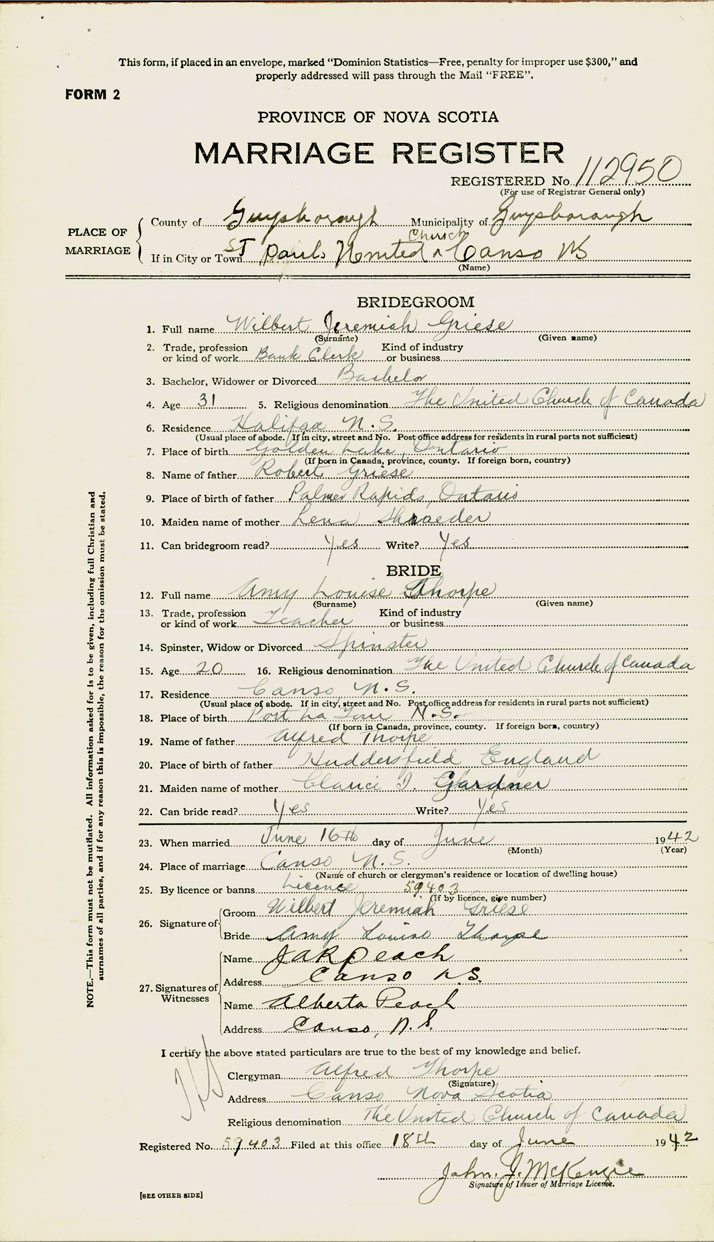 This form, if placed in an envelope, marked "Dominion Statistics—Free, penalty for improper use $300," and
properly addressed will pass through the Mail "FREE".
FORM 2
PROVINCE OF NOVA SCOTIA
MARRIAGE REGISTER
REGISTERED No. 112950
(For use of Registrar General only)
PLACE OF MARRIAGE
County of Guysborough Municipality of Guysborough
If in City or Town ST Pauls United Church ^ Canso NS
(Name)
BRIDEGROOM
1. Full name Wilbert Jeremiah Griese
(Surname) (Given name)
2. Trade, profession or kind of work Bank Clerk Kind of industry or business
3. Bachelor, Widower or Divorced Bachelor
4. Age 31 5. Religious denomination The United Church of Canada
6. Residence Halifax N.S.
(Usual place of abode. If in city, street and No. Post office address for residents in rural parts not sufficient)
7. Place of birth Golden Lake, Ontario
(If born in Canada, province, county. If foreign born, country)
8. Name of father Robert Griese
9. Place of birth of father Palmer Rapids, Ontario
10. Maiden name of mother Lena Shraeder
11. Can bridegroom read? Yes Write? Yes
BRIDE
12. Full name Amy Louise Thorpe
(Surname) (Given name)
13. Trade, profession or kind of work Teacher Kind of industry or business
14. Spinster, Widow or Divorced Spinster
15. Age 20 16. Religious denomination The United Church of Canada
17. Residence Canso N.S.
(Usual place of abode. If in city, street and No. Post office address for residents in rural parts not sufficient)
18. Place of birth Port La Tour N.S.
(If born in Canada, province, county. If foreign born, country)
19. Name of father Alfred Thorpe
20. Place of birth of father Huddersfield England
21. Maiden name of mother Gardner
22. Can bride read? Yes Write? Yes
23. When married June 16th day of June 1942
(Month) (Year)
24. Place of marriage Canso N.S.
(Name of church or clergyman's residence or location of dwelling house)
25. By licence or banns Licence 59403
(If by licence, give number)
26. Signature of
Groom Wilbert Jeremiah Griese
Bride Amy Louise Thorpe
27. Signatures of Witnesses
Name Peach
Address Canso N.S.
Name Alberta Peach
Address Canso, N.S.
I certify the above stated particulars are true to the best of my knowledge and belief.
Clergyman Alfred Thorpe
(Signature)
Address Canso Nova Scotia
Religious denomination The United Church of Canada
Registered No. 59403 Filed at this office 18th day of June 1942
John. J. McKenzie
Signature of Issuer of Marriage Licence.
[SEE OTHER SIDE]
NOTE.—This form must not be mutilated. All information asked for is to be given, including full Christian and
surnames of all parties, and if for any reason this is impossible, the reason for the omission must be stated.